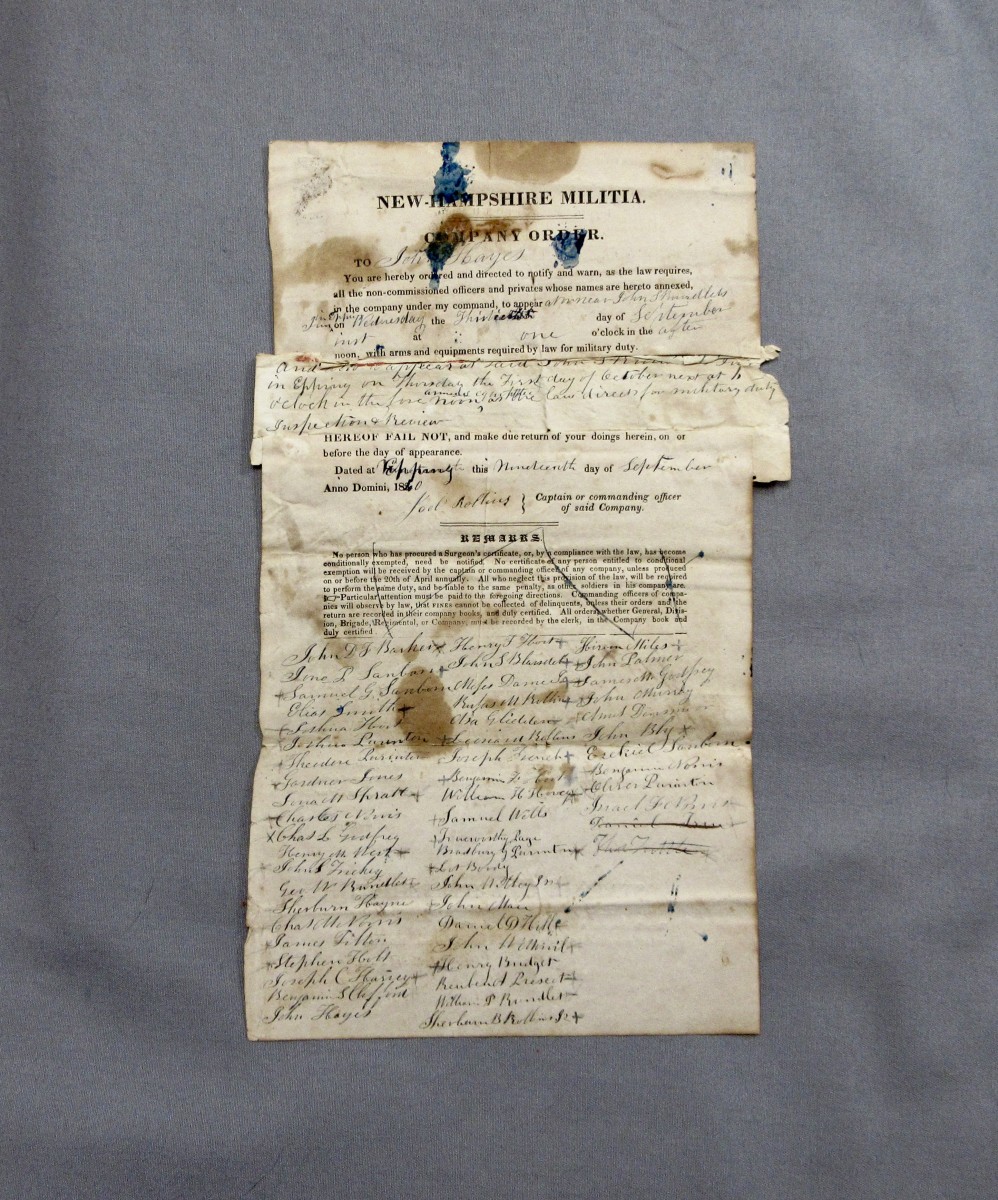 NEW-HAMPSHIRE MILITIA.
COMPANY ORDER.
TO John Hayes
You are hereby ordered and directed to notify and warn, as the law requires,
all the non-commissioned officers and privates whose names are hereto annexed,
in the company under my command, to appear at or near John
on Wednesday the day of September
inst at one o'clock in the after
noon, with arms and equipments required by law for military duty.
and appear at said John
in Epping on Thursday the First day of October next at
o'clock in the fore noon as the law directs for military duty
Inspection & Review
HEREOF FAIL NOT, and make due return of your doings herein, on or
before the day of appearance.
Dated at Epping this Nineteenth day of September
Anno Domini, 18
Joel Rollins } Captain or commanding officer
of said Company.
REMARKS.
No person who has procured a Surgeon's certificate, or, by a compliance with the law, has become
conditionally exempted, need be notified. No certificate of any person entitled to conditional
exemption will be received by the captain or commanding officer of any company, unless produced
on or before the 20th of April annually. All who neglect this provision of the law, will be required
to perform the same duty, and be liable to the same penalty, as other soldiers in his company are.
☞ Particular attention must be paid to the foregoing directions. Commanding officers of compa-
nies will observe by law, that FINES cannot be collected of delinquents, unless their orders and the
return are recorded in their company books, and duly certified. All orders whether General, Divis-
ion, Brigade, Regimental, or Company, must be recorded by the clerk, in the Company book and
duly certified
John D F Barker
Samuel G. Sanborn
Elias Smith
Joshua
Joshua Purinton
Theodore Purinton
Gardner Jones
Spratt
Charles Norris
Chas L Godfrey
Henry M West
John S Frickey
Geo W Brundlet
Sherburn Hayne
Chas M Norris
James Tilton
Stephen Holt
Joseph C Harvey
Benjamin S Clifford
John Hayes
Henry F
John S Blaisdell
Moses Dame Jr
Rufus M Rollins
Asa Glidden
Leonard Rollins
Joseph French
Benjamin F
William H Harvey
Samuel Wills
Trueworthy Page
Bradbury J Purinton
Lot Bordy
John Jr
John
Daniel D
John
Henry Budget
Reuben L Prescot
William P Brundlet
Sherburn B Rollins Jr
Hiram Miles
John Palmer
James M Godfrey
John Murray
Amos
John Bly
Ezekiel Sanborn
Benjamin Norris
Oliver Purinton
Israel F Norris
Daniel